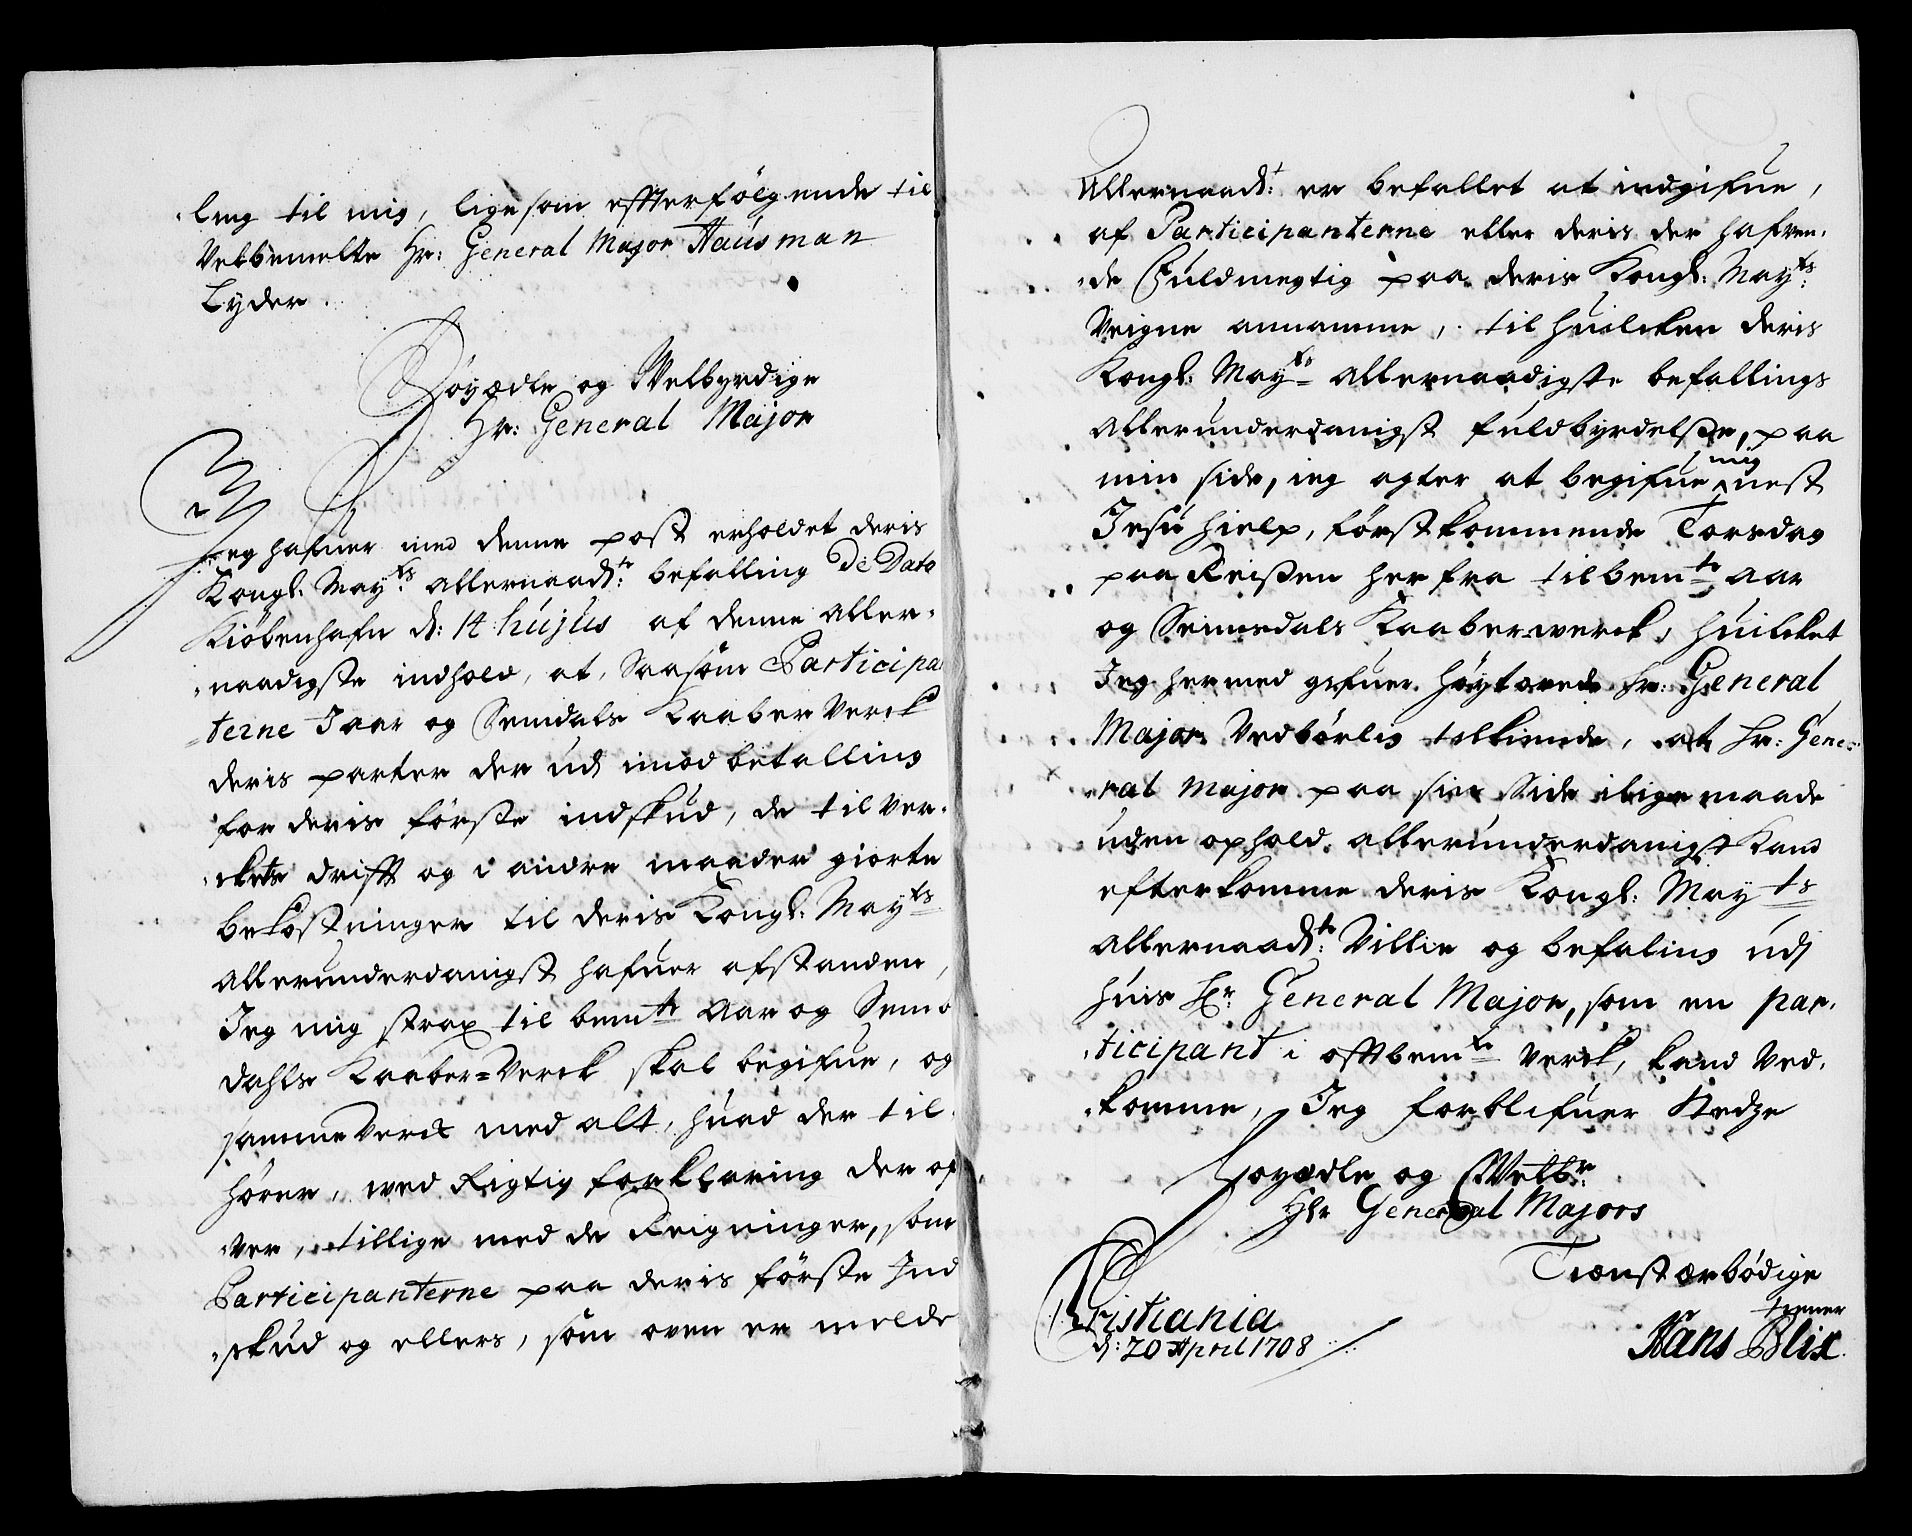 ling til mig, ligesom effterfölgende til
Velbemelte Hr: General Major Hausman
Lyder.
Höyædle og Welbyrdige
Hr: General Major
Jeg hafuer med denne post erholdet deris
Kongl: Mayts allernaadte: befalling De Dato
Kiöbenhafn d: 14 hujus af denne aller-
naadigste indhold, at, Saasom Participan
terne J aar og Semdals Kaaber Verck
deris parter der ud imod betalling
for deris förste indskud, de til Ver-
ckets drifft og i andre maader giorte
bekostninger til deris Kongl: Mayts
allerunderdanigst hafuer afstanden,
Jeg mig strax til bemte Aar og Sem-
dahls Kaaber-Verck skal begifue, og
samme Verck med alt, huad der til-
hörer, med Rigtig forklaring der of-
ver, tillige med de Reigninger, som
Participanterne paa deris förste Ind
skud og ellers, som oven er melde
Allernaadt: er befallet at indgifue,
af Participanterne eller deris der hafven-
de Fuldmegtig paa deris Kongl: Mayts:
Veigne annamme, til huilcken deris
Kongl: Mayts allernaadigste befallings
allerunderdanigst fuldbyrdelsse, paa
min side, ieg agter at begifue mig nest
Jesu hielp, förstkommende Torsdag
paa Reissen her fra til bemte Aar
og Semmedals Kaaberwerck, huilcket
Jeg hermed gifuer höytærede Hr: General
Major Vedbörlig tilkiende, at Hr: Gene-
ral Major paa sin Side ilige maade
uden ophold allerunderdanigst kand
efterkomme deris Kongl: Mayts
allernaadte: Villie og befaling udj
huis Hr: General Major, som en par-
ticipant i offtbemte Verck, kand Ved-
komme, Jeg forblifuer Stedze
Höyædle og Welbr:
Hr General Majors
Tienstærbödige
tienner
Hans Blix.
Cristiania
d: 20 April 1708